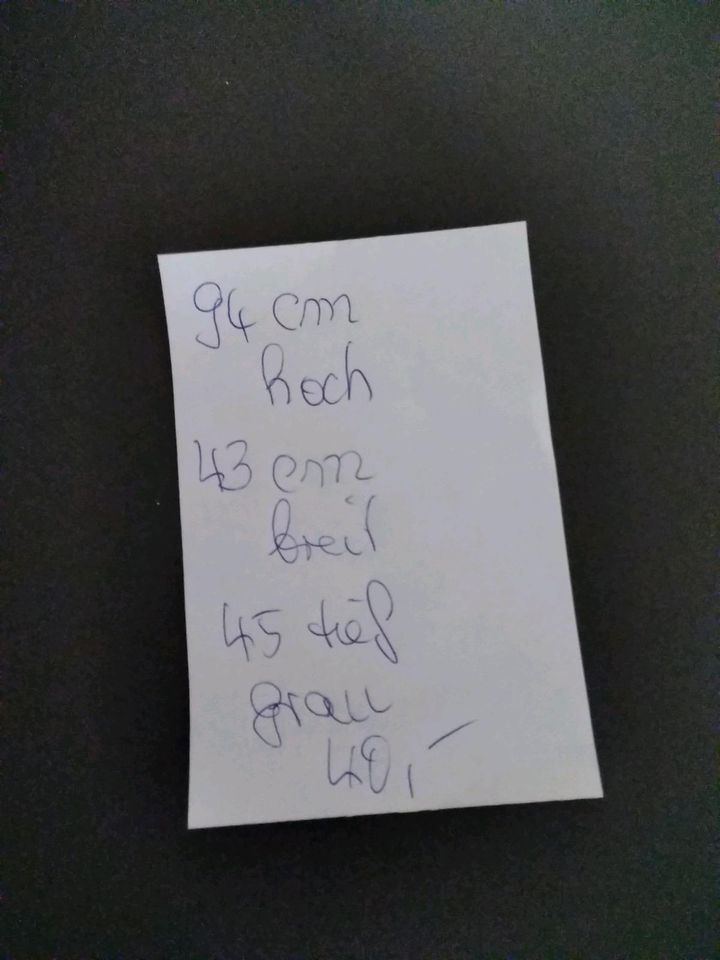 94 cm
hoch
43 cm
breit
45 tief
grau
40,-